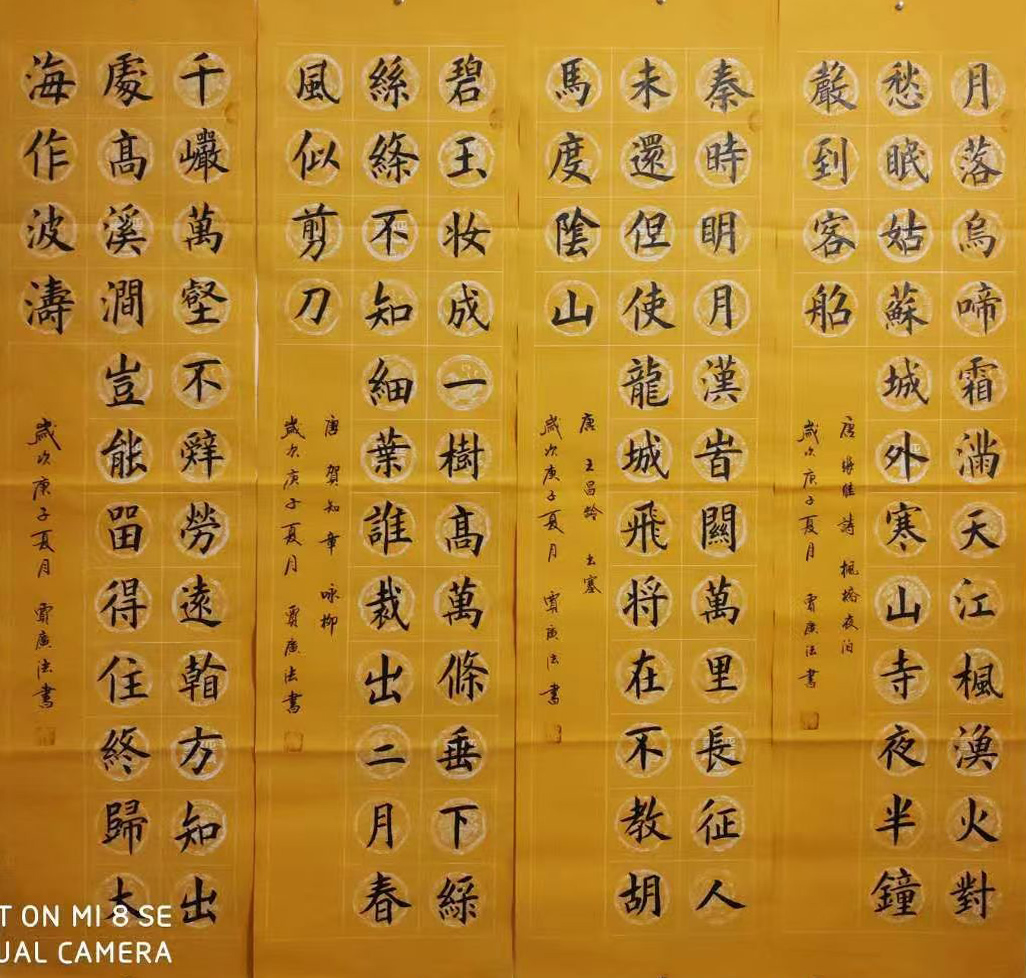 月落烏啼霜滿天江楓漁火對
愁眠姑蘇城外寒山寺夜半鐘
嚴到客船
唐 張継 詩 楓橋夜泊
歲次庚子夏月 賈廣法書
秦時明月漢旹關萬里長征人
未還但使龍城飛將在不教胡
馬度陰山
唐 王昌齡 出塞
歲次庚子夏月 賈廣法書
碧玉妝成一樹高萬條垂下綠
絲絛不知細葉誰裁出二月春
風似剪刀
唐 賀知章 咏柳
歲次庚子夏月 賈廣法書
千巖萬壑不辭勞遠看方知出
處高溪澗豈能留得住終歸大
海作波濤
歲次庚子夏月 賈廣法書
T ON MI 8 SE
UAL CAMERA